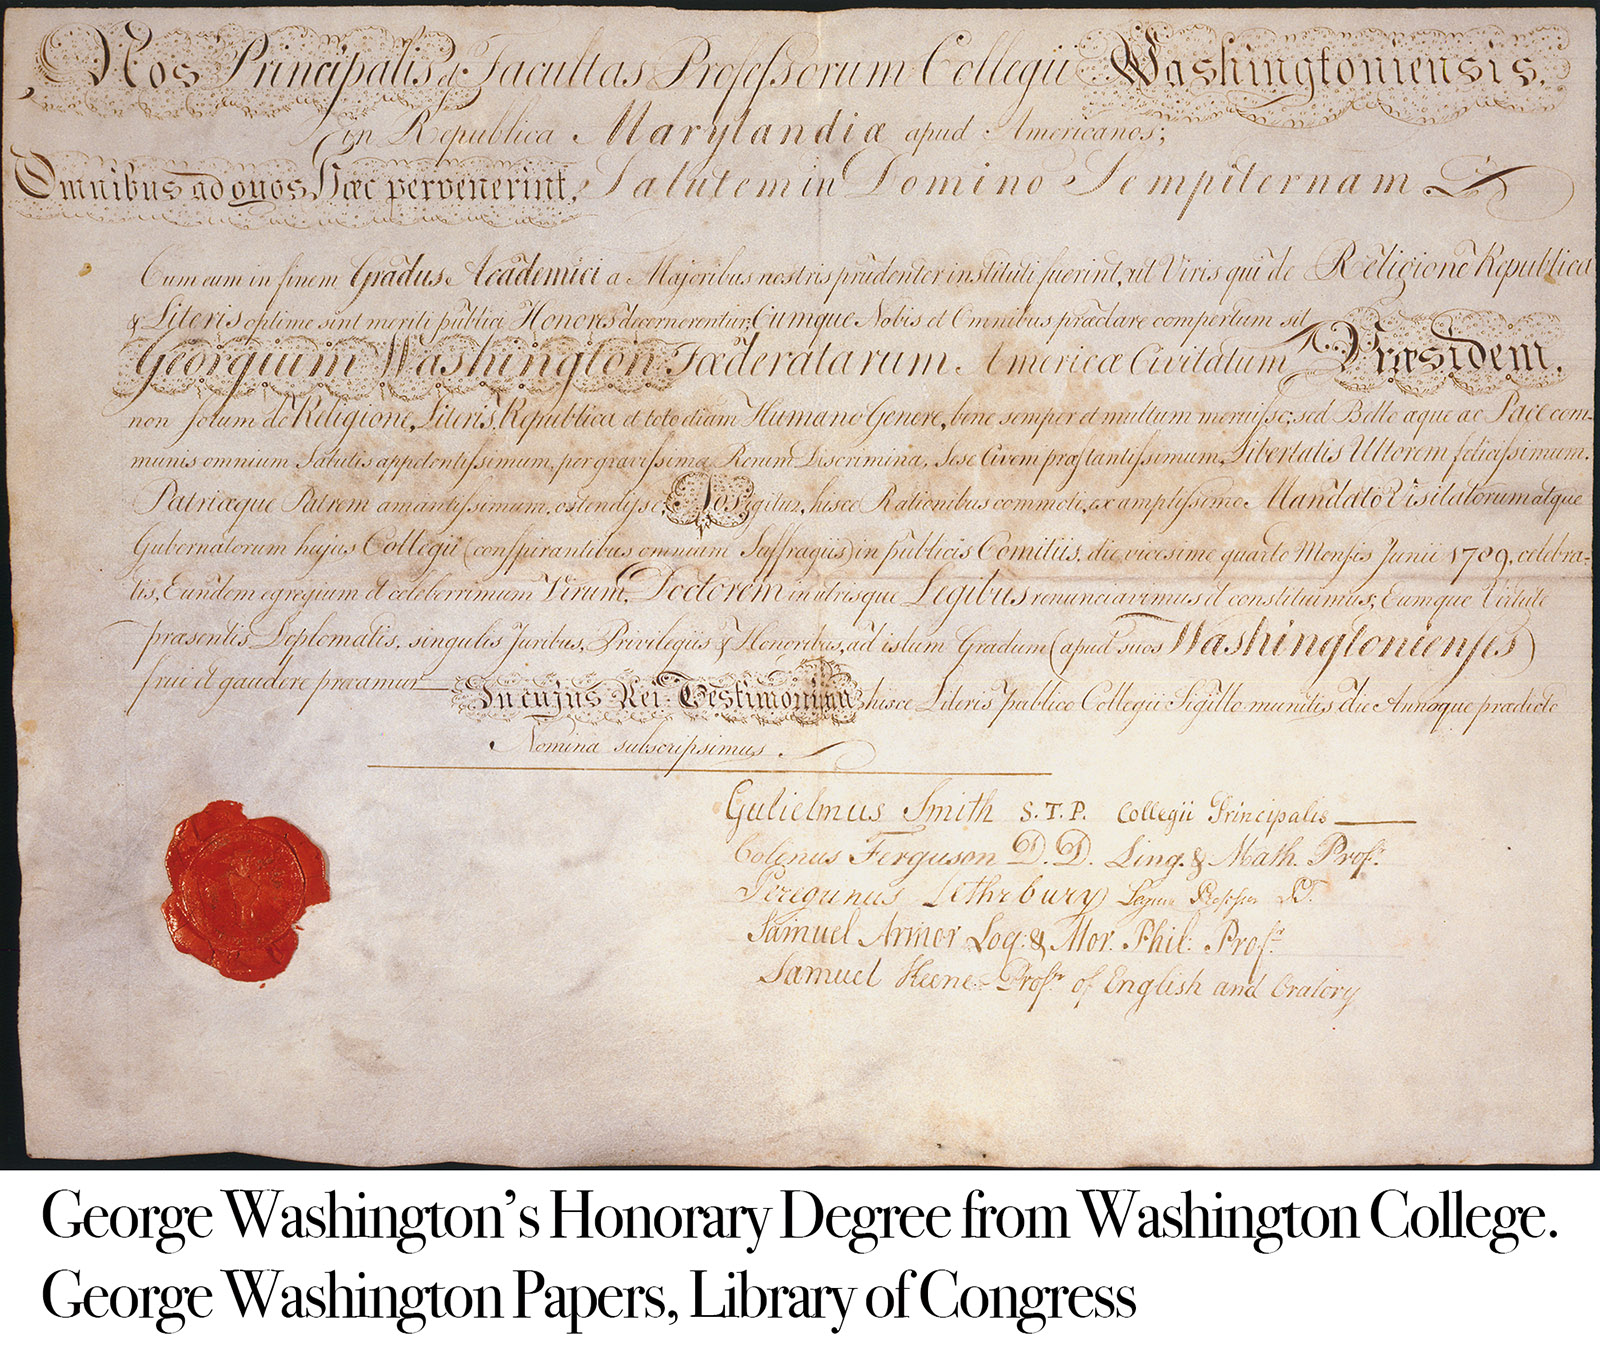 Nos Principalis et Facultas Professorum Collegii Washingtoniensis,
in Republica Marylandiæ apud Americanos;
Omnibus ad quos Hæc pervenerint, Salutem in Domino Sempiternam
Cum eum in finem Gradus Academici a Majoribus nostris prudenter instituti fuerint, ut Viris qui de Religione Republica
& Literis optime sint meriti publici Honores decernerentur; Cumque Nobis et Omnibus præclare compertum sit
Georgium Washington Fœderatarum Americæ Civitatum Præsidem,
non solum de Religione, Literis, Republica et toto etiam Humano Genere, bene semper et multum meruisse; sed Bello æque ac Pace com-
munis omnium Salutis appetentissimum, per gravissima Rerum Discrimina, Sese Civem præstantissimum, Libertatis Ultorem felicissimum,
Patriæque Patrem amantissimum, ostendisse; Nos igitur, hisce Rationibus commoti, ex amplissimo Mandato Visitatorum atque
Gubernatorum hujus Collegii (conspirantibus omnium Suffragiis) in publicis Comitiis, die vicesimo quarto Mensis Junii 1789, celebra-
tis, Eundem egregium et celeberrimum Virum, Doctorem in utrisque Legibus renunciavimus et constituimus; Eumque Virtute
præsentis Diplomatis, singulis Juribus, Privilegiis & Honoribus, ad istum Gradum (apud suos Washingtonienses)
frui et gaudere
In cujus Rei Testimonium hisce Literis publico Collegii Sigillo munitis die Annoque prædicto
Nomina subscripsimus.
Gulielmus Smith S.T.P. Collegii Principalis
Colenus Ferguson D.D. Ling. & Math. Profr.
Peregrinus Lethrbury
Samuel Armor Log: & Mor. Phil: Profr
Samuel Keene Profr. of English and Oratory
George Washington's Honorary Degree from Washington College.
George Washington Papers, Library of Congress